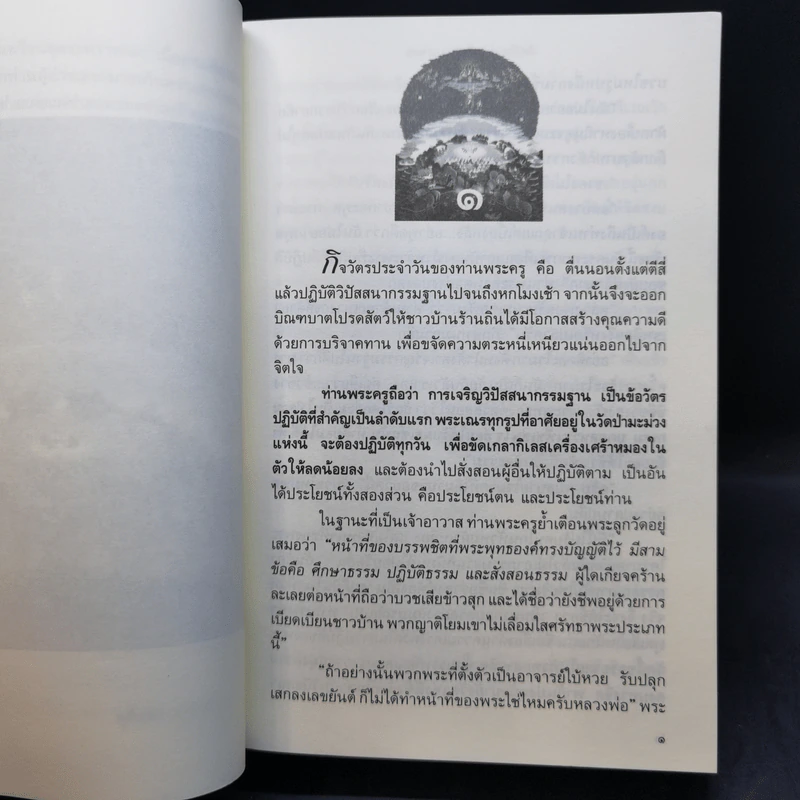 ๑
กิจวัตรประจำวันของท่านพระครู คือ ตื่นนอนตั้งแต่ตีสี่
แล้วปฏิบัติวิปัสสนากรรมฐานไปจนถึงหกโมงเช้า จากนั้นจึงจะออก
บิณฑบาตโปรดสัตว์ให้ชาวบ้านร้านถิ่นได้มีโอกาสสร้างคุณความดี
ด้วยการบริจาคทาน เพื่อขจัดความตระหนี่เหนียวแน่นออกไปจาก
จิตใจ
ท่านพระครูถือว่า การเจริญวิปัสสนากรรมฐาน เป็นข้อวัตร
ปฏิบัติที่สำคัญเป็นลำดับแรก พระเณรทุกรูปที่อาศัยอยู่ในวัดป่ามะม่วง
แห่งนี้ จะต้องปฏิบัติทุกวัน เพื่อขัดเกลากิเลสเครื่องเศร้าหมองใน
ตัวให้ลดน้อยลง และต้องนำไปสั่งสอนผู้อื่นให้ปฏิบัติตาม เป็นอัน
ได้ประโยชน์ทั้งสองส่วน คือประโยชน์ตน และประโยชน์ท่าน
ในฐานะที่เป็นเจ้าอาวาส ท่านพระครูย้ำเตือนพระลูกวัดอยู่
เสมอว่า “หน้าที่ของบรรพชิตที่พระพุทธองค์ทรงบัญญัติไว้ มีสาม
ข้อคือ ศึกษาธรรม ปฏิบัติธรรม และสั่งสอนธรรม ผู้ใดเกียจคร้าน
ละเลยต่อหน้าที่ถือว่าบวชเสียข้าวสุก และได้ชื่อว่ายังชีพอยู่ด้วยการ
เบียดเบียนชาวบ้าน พวกญาติโยมเขาไม่เลื่อมใสศรัทธาพระประเภท
นี้”
“ถ้าอย่างนั้นพวกพระที่ตั้งตัวเป็นอาจารย์ใบ้หวย รับปลุก
เสกลงเลขยันต์ ก็ไม่ได้ทำหน้าที่ของพระใช่ไหมครับหลวงพ่อ” พระ
๑